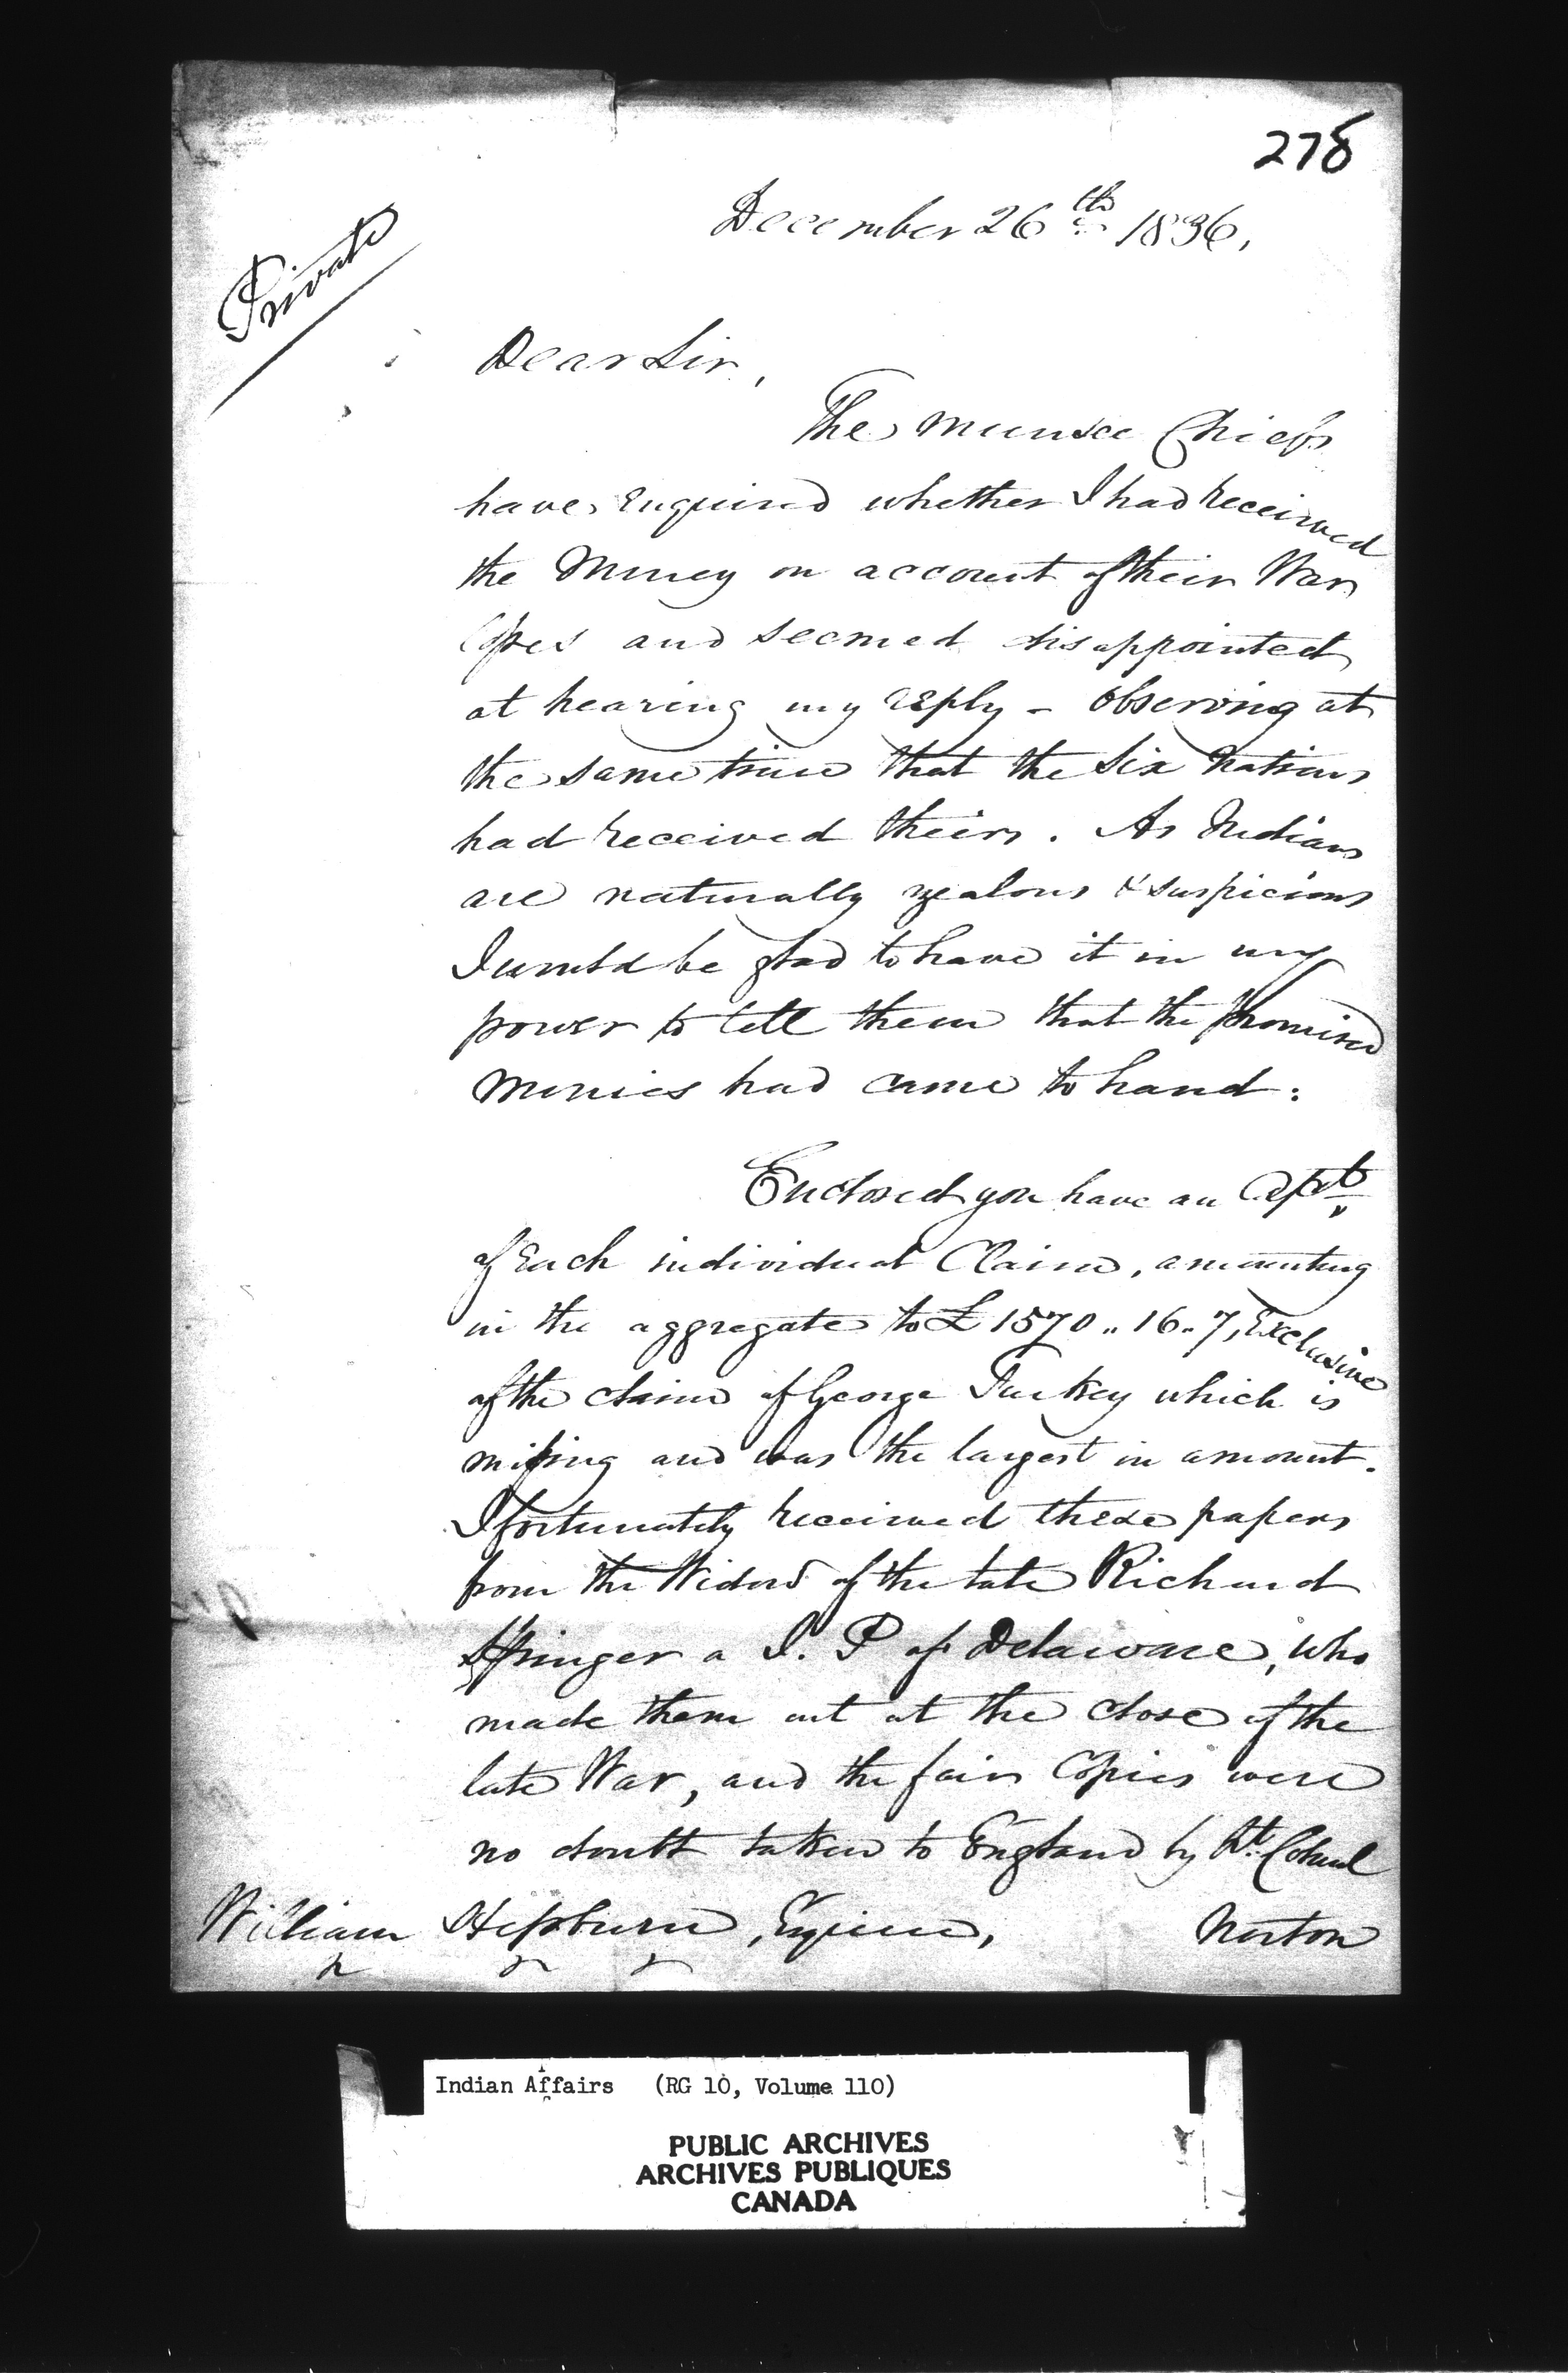 278
December 26th 1836,
Private
Dear Sir,
The Munsee Chiefs
have enquired whether I had received
the Money on account of their War
Losses and seemed disappointed
at hearing my reply - observing at
the same time that the Six Nations
had received theirs. As Indians
are naturally zealous & suspicious
I would be glad to have it in my
power to tell them that the promised
monies had came to hand.
Enclosed you have an
of Each individual Claim, amounting
in the aggregate to £ 1570 .. 16 .. 7, Exclusive
of the claim of George Turkey which is
missing and was the largest in amount.
I fortunately received these papers
from the Widow of the late Richard
Springer a J. P of Delaware, who
made them out at the close of the
late War, and the fair Copies were
no doubt taken to England by Lt. Colonel
William Hepburn, Esquire, Norton
Indian Affairs (RG 10, Volume 110)
PUBLIC ARCHIVES
ARCHIVES PUBLIQUES
CANADA